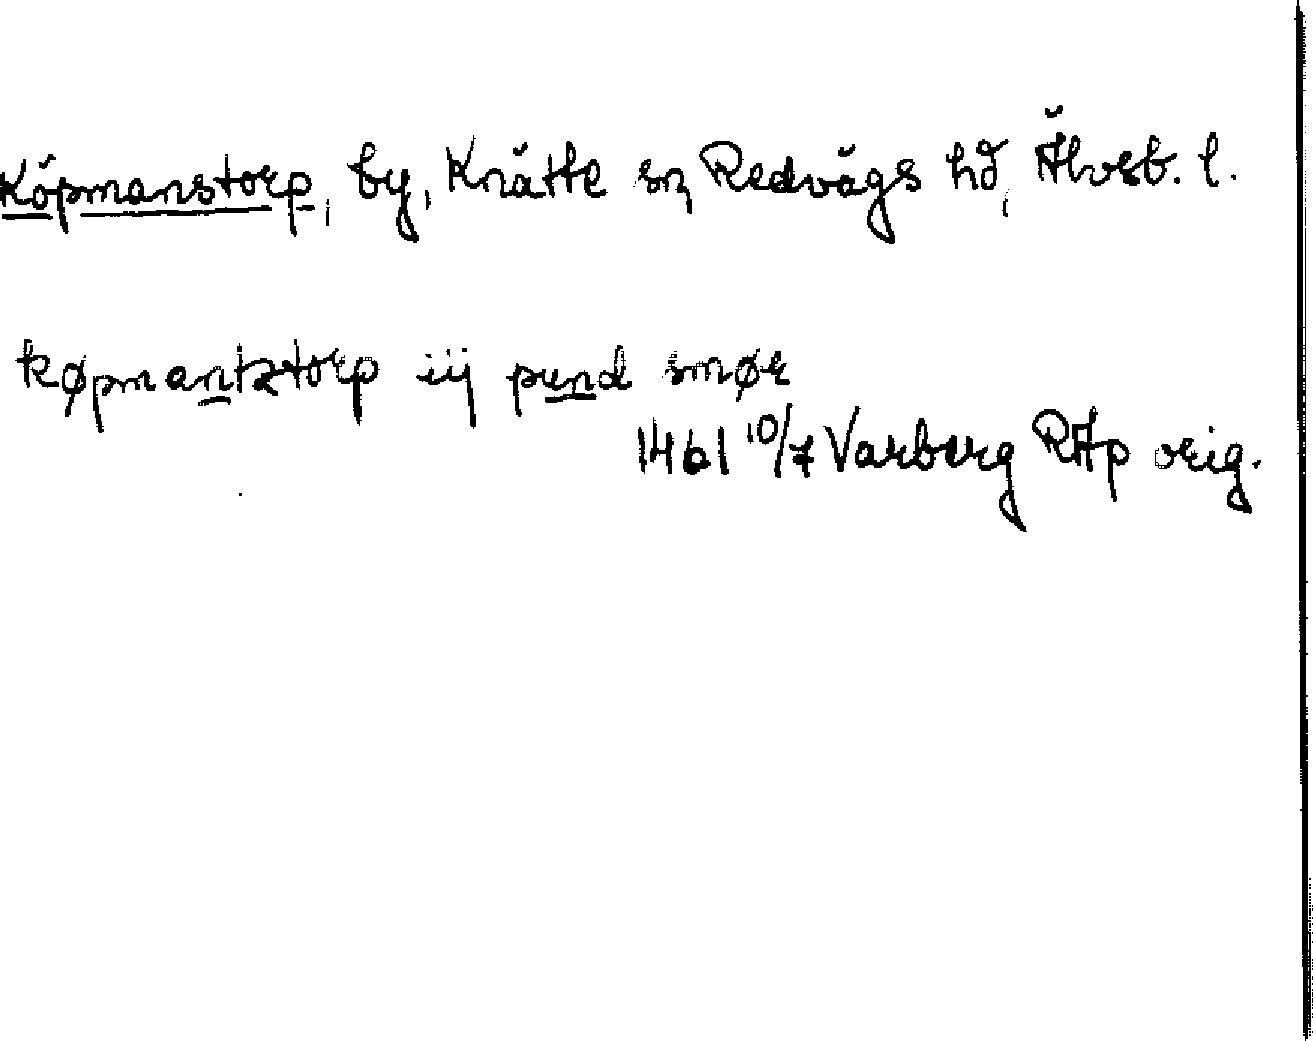 Köpmanstorp, by, Knätte sn, Redvägs hd, Älvsb. l.
køpmanztorp iij pund smør
1461 10/7 Varberg RAp orig.